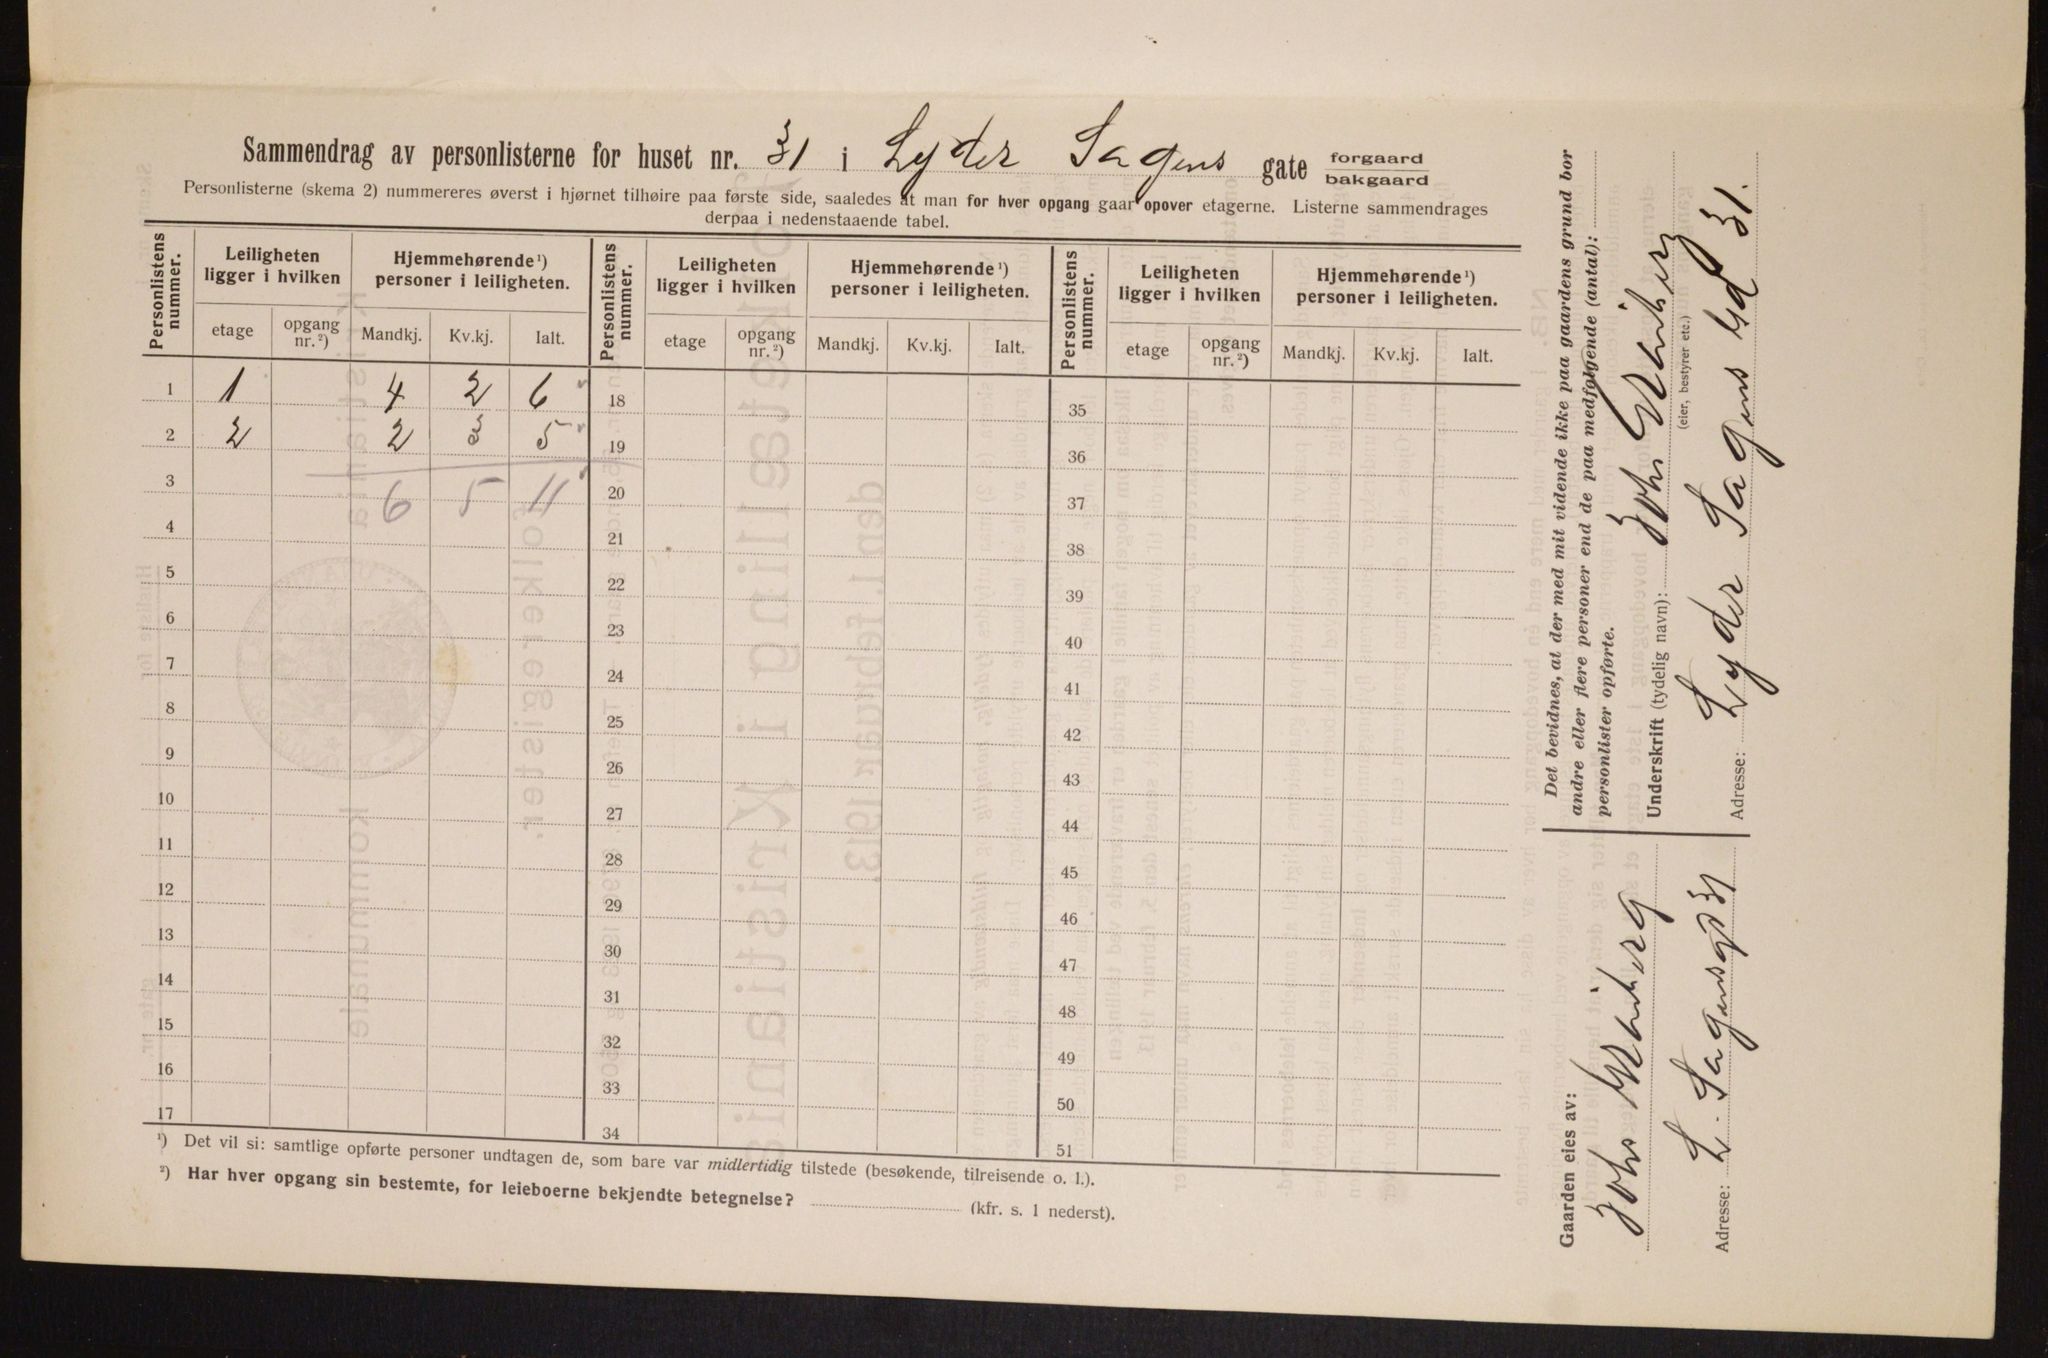 Sammendrag av personlisterne for huset nr. 31 i Lyder Sagens gate forgaard
bakgaard
Personlisterne (skema 2) nummereres øverst i hjørnet tilhøire paa første side, saaledes at man for hver opgang gaar opover etagerne. Listerne sammendrages
derpaa i nedenstaaende tabel.
Personlistens nummer. Leiligheten ligger i hvilken Hjemmehørende ¹) personer i leiligheten. Personlistens nummer. Leiligheten ligger i hvilken Hjemmehørende ¹) personer i leiligheten. Personlistens nummer. Leiligheten ligger i hvilken Hjemmehørende ¹) personer i leiligheten.
etage opgang nr. ²) Mandkj. Kv.kj. Ialt. etage opgang nr. ²) Mandkj. Kv.kj. Ialt. etage opgang nr. ²) Mandkj. Kv.kj. Ialt.
1 1 4 2 6 18 35
2 2 2 3 5 19 36
3 6 5 11 20 37
4 21 38
5 22 39
6 23 40
7 24 41
8 25 42
9 26 43
10 27 44
11 28 45
12 29 46
13 30 47
14 31 48
15 32 49
16 33 50
17 34 51
¹) Det vil si: samtlige opførte personer undtagen de, som bare var midlertidig tilstede (besøkende, tilreisende o. l.).
²) Har hver opgang sin bestemte, for leieboerne bekjendte betegnelse? (kfr. s. 1 nederst).
Det bevidnes, at der med mit vidende ikke paa gaardens grund bor
andre eller flere personer end de paa medfølgende (antal):
personlister opførte.
Underskrift (tydelig navn): Johs
(eier, bestyrer etc.)
Adresse: Lyder Sagens Gd 31.
Gaarden eies av:
Johs
Adresse: L. Sagensgd 31